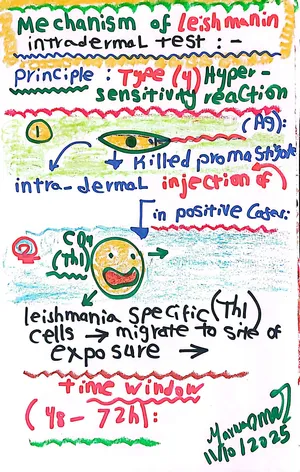 Mechanism of leishmanin
intradermal test : -
Principle : Type (4) Hyper-
sensitivity reaction
1
(Ag):
Killed promastigote
intra-dermal injection of
in positive Cases:
2
CD4
(Th1)
leishmania specific (Th1)
cells → migrate to site of
exposure →
time window
(48 - 72h):
11/10/2025